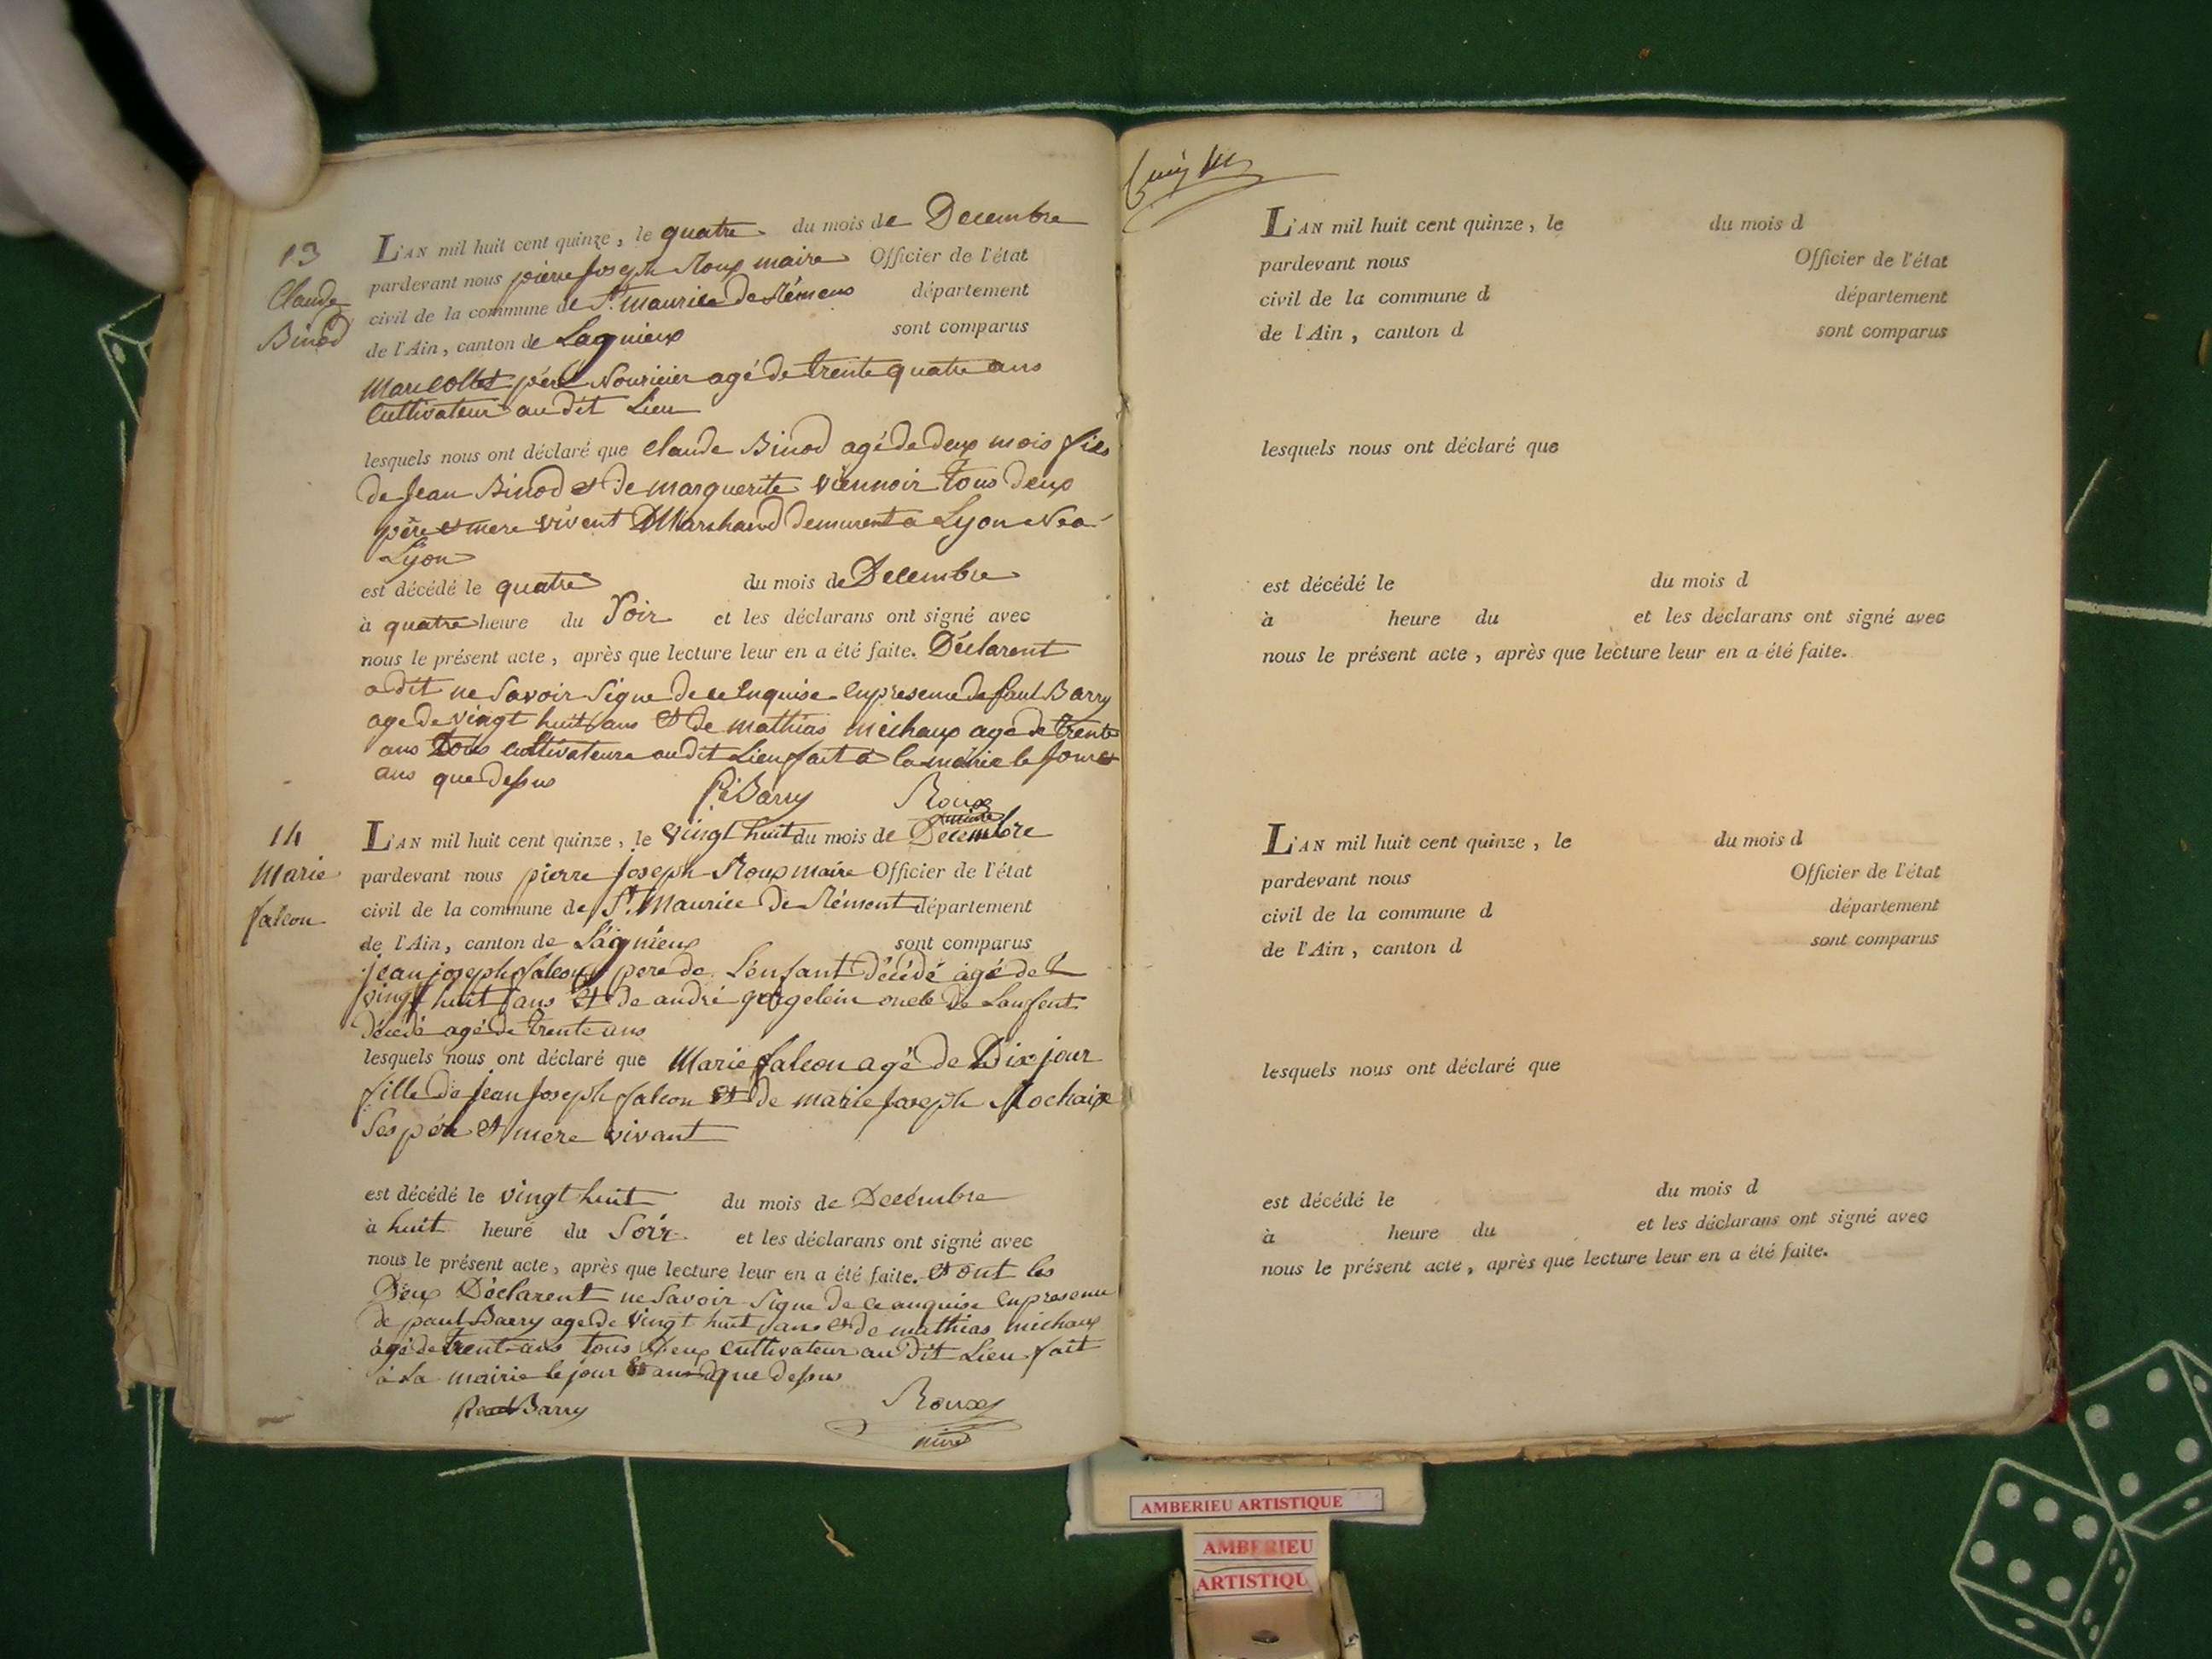 13
Claude
Binod
L'AN mil huit cent quinze, le quatre du mois de Decembre
pardevant nous pierre Joseph Roux maire Officier de l'état
civil de la commune de St. maurice de Rémens département
de l'Ain, canton de Lagnieux sont comparus
Marc Collet père Nouricier agé de trente quatre ans
Cultivateur au dit Lieu
lesquels nous ont déclaré que Claude Binod agé de deux mois fils
de Jean Binod et de marguerite viennoir tous deux
père et mere vivent Marchand demurent a Lyon Nea
Lyon
est décédé le quatre du mois de Decembre
à quatre heure du Soir et les déclarans ont signé avec
nous le présent acte, après que lecture leur en a été faite. Déclarent
a dit ne Savoir Signe de ce Enquise En presence de paul Barry
age de vingt huit ans et de mathias michaux age de trente
ans tous cultivateurs au dit Lieu fait a la mérie le Jour et
ans que dessus
Pe Barry Roux
maire
14
Marie
falcon
L'AN mil huit cent quinze, le vingt huit du mois de Decembre
pardevant nous pierre joseph Roux maire Officier de l'état
civil de la commune de St. Maurice de Rément département
de l'Ain, canton de Lagnieux sont comparus
jean joseph falcon pere de L'enfant décédé agé de
vingt huit ans et de andré gorgelein oncle de Lanfent
décédé agé de trente ans
lesquels nous ont déclaré que Marie falcon agé de Dix jour
fille de jean Joseph falcon et de marie Joseph Mochaix
Ses pére et mére vivant
est décédé le vingt huit du mois de Decémbre
à huit heure du Soir et les déclarans ont signé avec
nous le présent acte, après que lecture leur en a été faite. et ont les
Deux Déclarent ne Savoir Signe de ce anquise En presence
de paul Barry age de vingt huit ans et de mathias michaux
âgé de trent ans tous Deux cultivateur au dit Lieu fait
à La mairie le jour et ans que dessus
Barry Roux
L'AN mil huit cent quinze, le du mois d
pardevant nous Officier de l'état
civil de la commune d département
de l'Ain, canton d sont comparus
lesquels nous ont déclaré que
est décédé le du mois d
à heure du et les déclarans ont signé avec
nous le présent acte, après que lecture leur en a été faite.
L'AN mil huit cent quinze, le du mois d
pardevant nous Officier de l'état
civil de la commune d département
de l'Ain, canton d sont comparus
lesquels nous ont déclaré que
est décédé le du mois d
à heure du et les déclarans ont signé avec
nous le présent acte, après que lecture leur en a été faite.
AMBERIEU ARTISTIQUE
AMBERIEU
ARTISTIQU